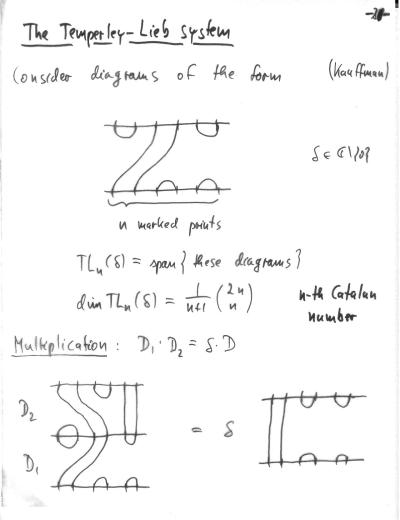 The Temperley-Lieb system
Consider diagrams of the form (Kauffman)
δ ∈ ℂ\{0}
n marked points
TLₙ(δ) = span { these diagrams }
dim TLₙ(δ) = 1/(n+1) (2n n) n-th Catalan
number
Multiplication : D₁ · D₂ = δ · D
D₂
= δ
D₁